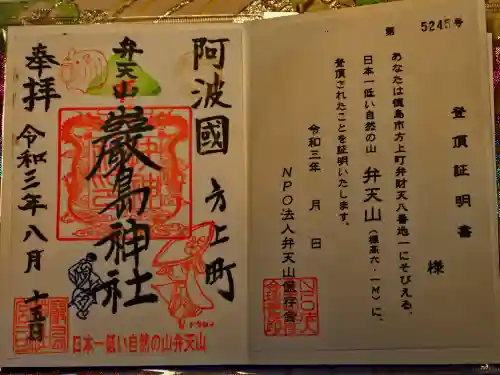 第 5245号
登頂証明書
様
あなたは徳島市方上町弁財天八番地一にそびえる、
日本一低い自然の山 弁天山(標高六・一M)に、
登頂されたことを証明いたします。
令和三年 月 日
NPO法人弁天山保存会
阿波國 方上町
弁天山
嚴島神社
奉拝
令和三年八月十五日
日本一低い自然の山弁天山